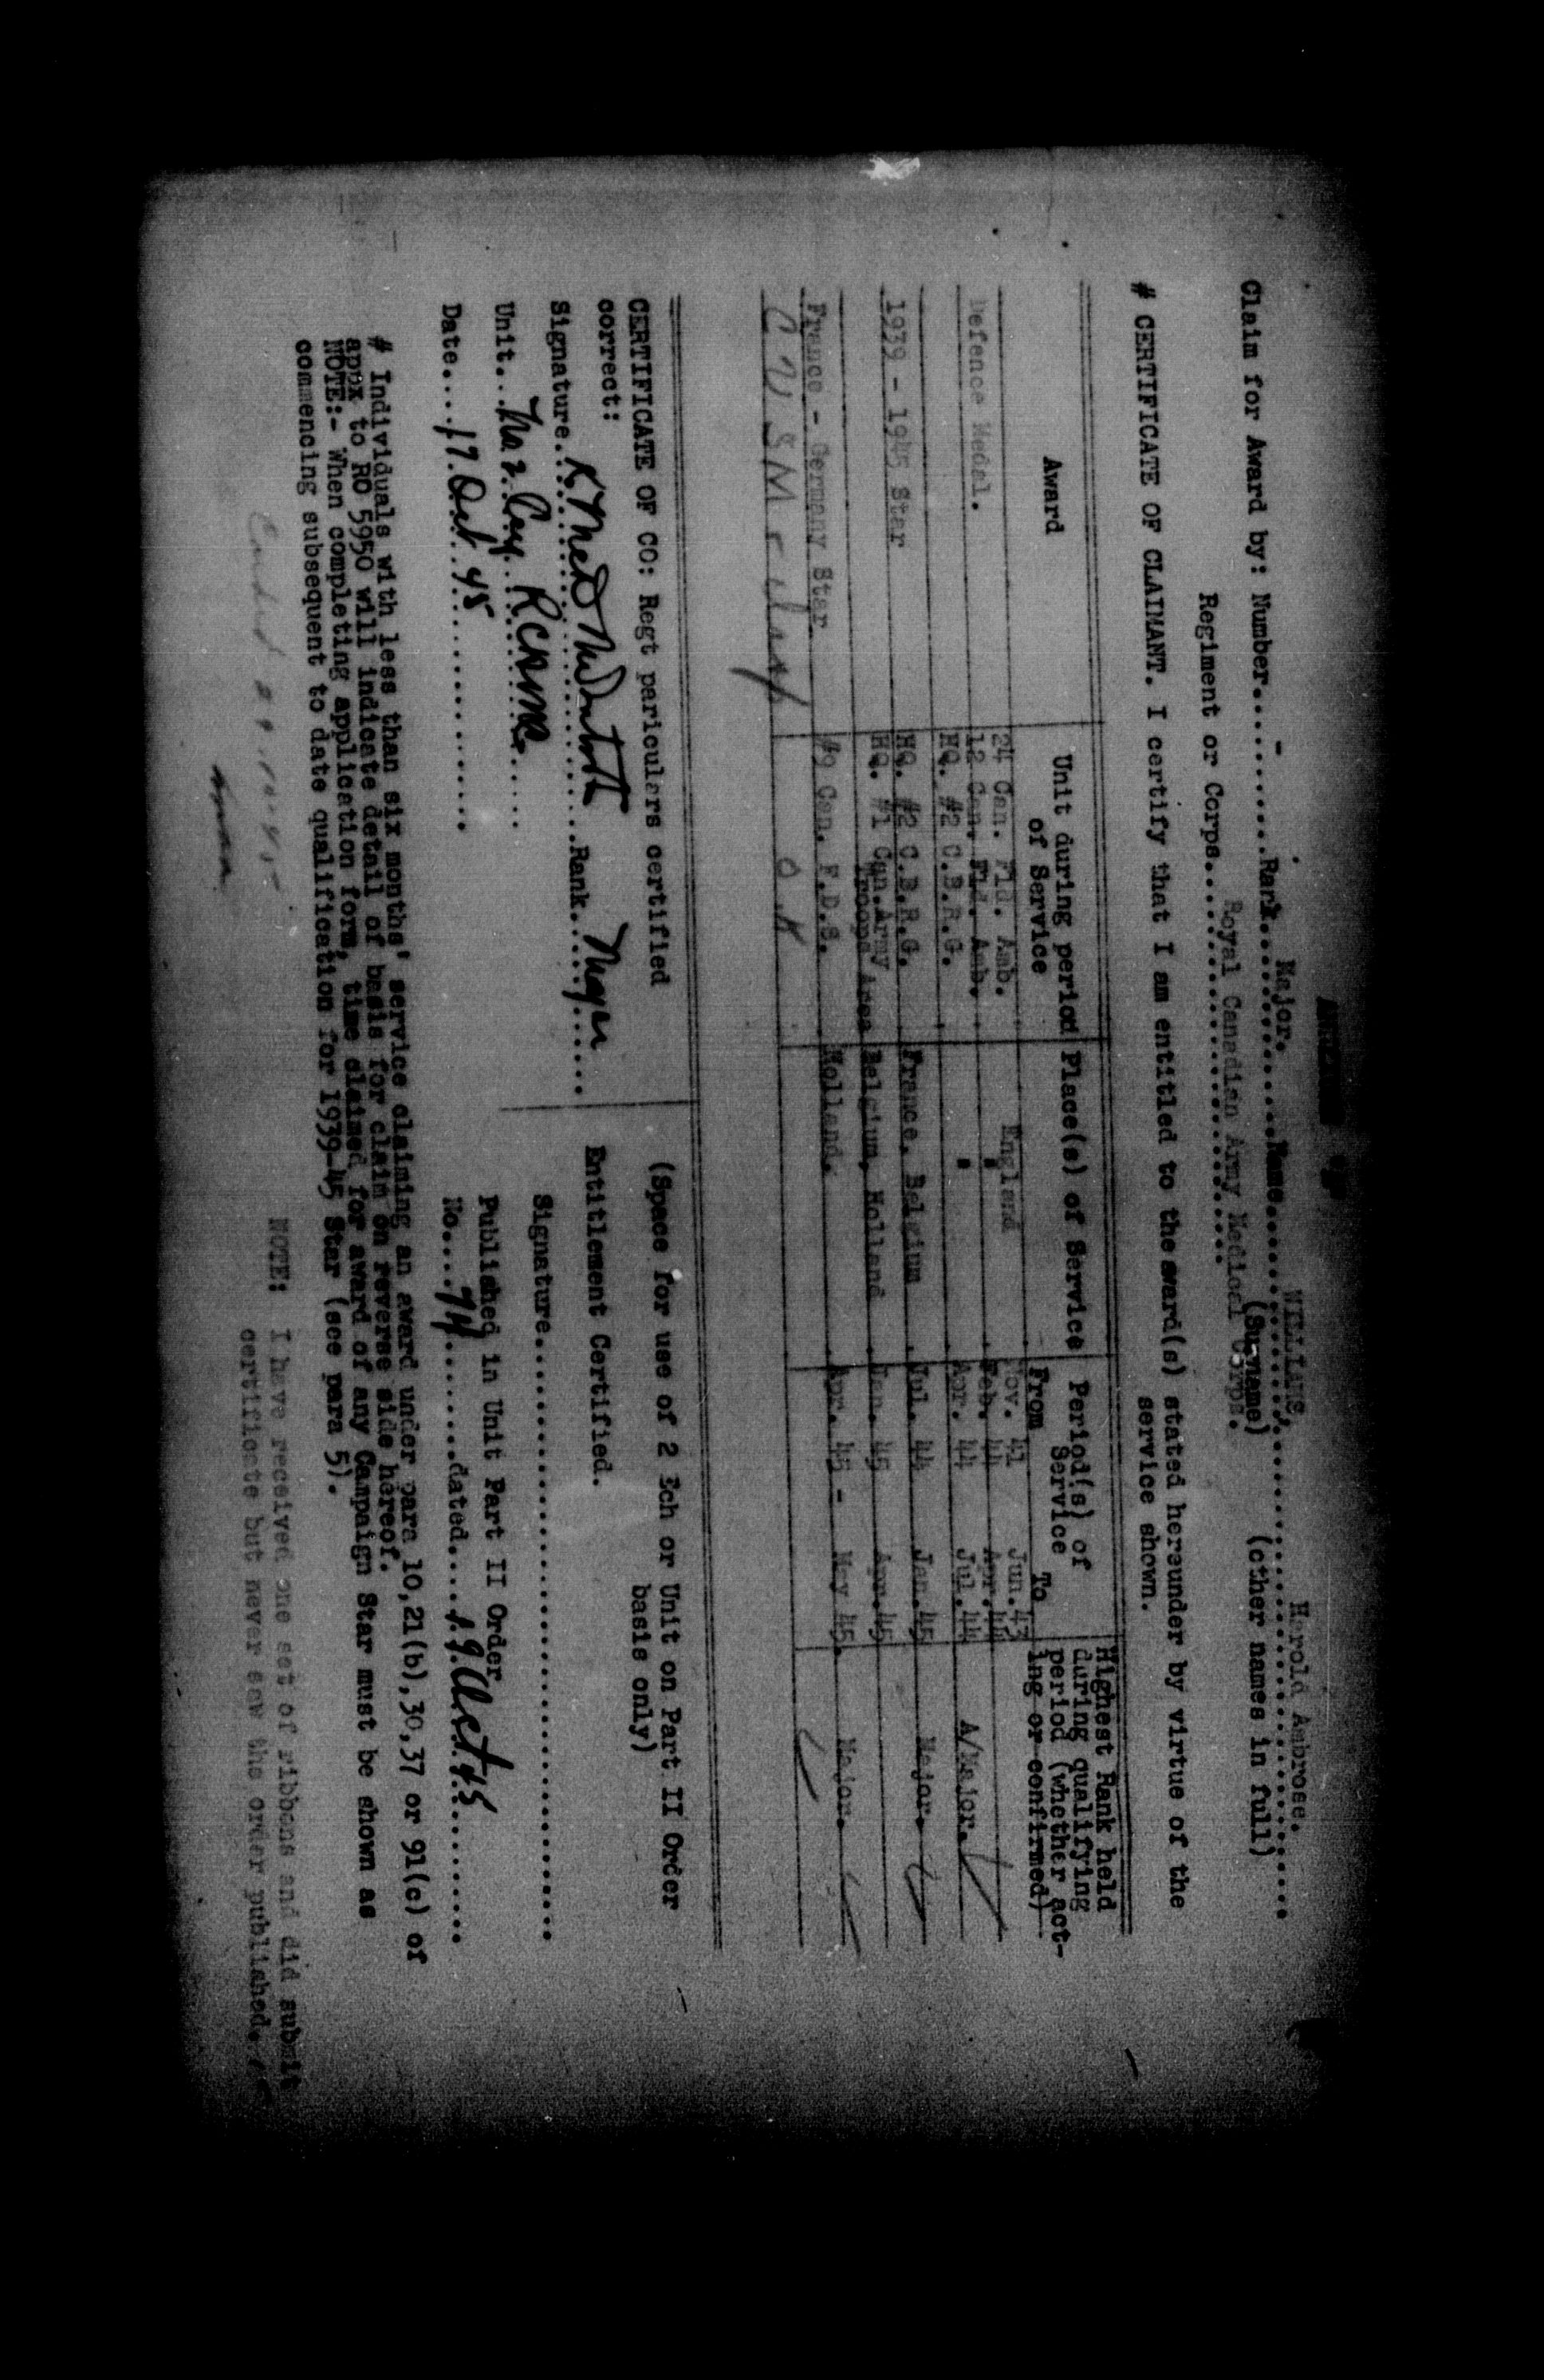 Claim for Award by: Number....-......Rank...Major.......Name...WILLIAMS,........Harold Ambrose.....
(Surname) (other names in full)
Regiment or Corps....Royal Canadian Army Medical Corps.
# CERTIFICATE OF CLAIMANT. I certify that I am entitled to the award(s) stated hereunder by virtue of the
service shown.
Award Unit during period of Service Place(s) of Service Period(s) of Service From To Highest Rank held during qualifying period (whether act-ing or confirmed)
24 Can. Fld. Amb. England Nov. 41 Jun. 43
Defence Medal. 12 Can. Fld. Amb. " Feb. 44 Apr. 44
HQ. #2 C.B.R.G. " Apr. 44 Jul. 44 A/Major.
1939 - 1945 Star HQ. #2 C.B.R.G. France, Belgium Jul. 44 Jan. 45 Major.
HQ. #1 Can. Army Troops Area Belgium, Holland Jan. 45 Apr. 45
France - Germany Star #9 Can. F.D.S. Holland. Apr. 45 - May 45. Major.
C V S M - clasp O.K
CERTIFICATE OF CO: Regt pariculars certified
correct:
Signature..............Rank....Major......
Unit...RCAMC.....
Date....17.Oct.45.............
(Space for use of 2 Ech or Unit on Part II Order
basis only)
Entitlement Certified.
Signature....................................
Published in Unit Part II Order
No....74.........dated....19.Oct.45..........
# Individuals with less than six months' service claiming an award under para 10,21(b),30,37 or 91(c) of
appx to RO 5950 will indicate detail of basis for claim on reverse side hereof.
NOTE:- When completing application form, time claimed for award of any Campaign Star must be shown as
commencing subsequent to date qualification for 1939-45 Star (see para 5).
NOTE: I have received one set of ribbons and did submit
certificate but never saw the order published.